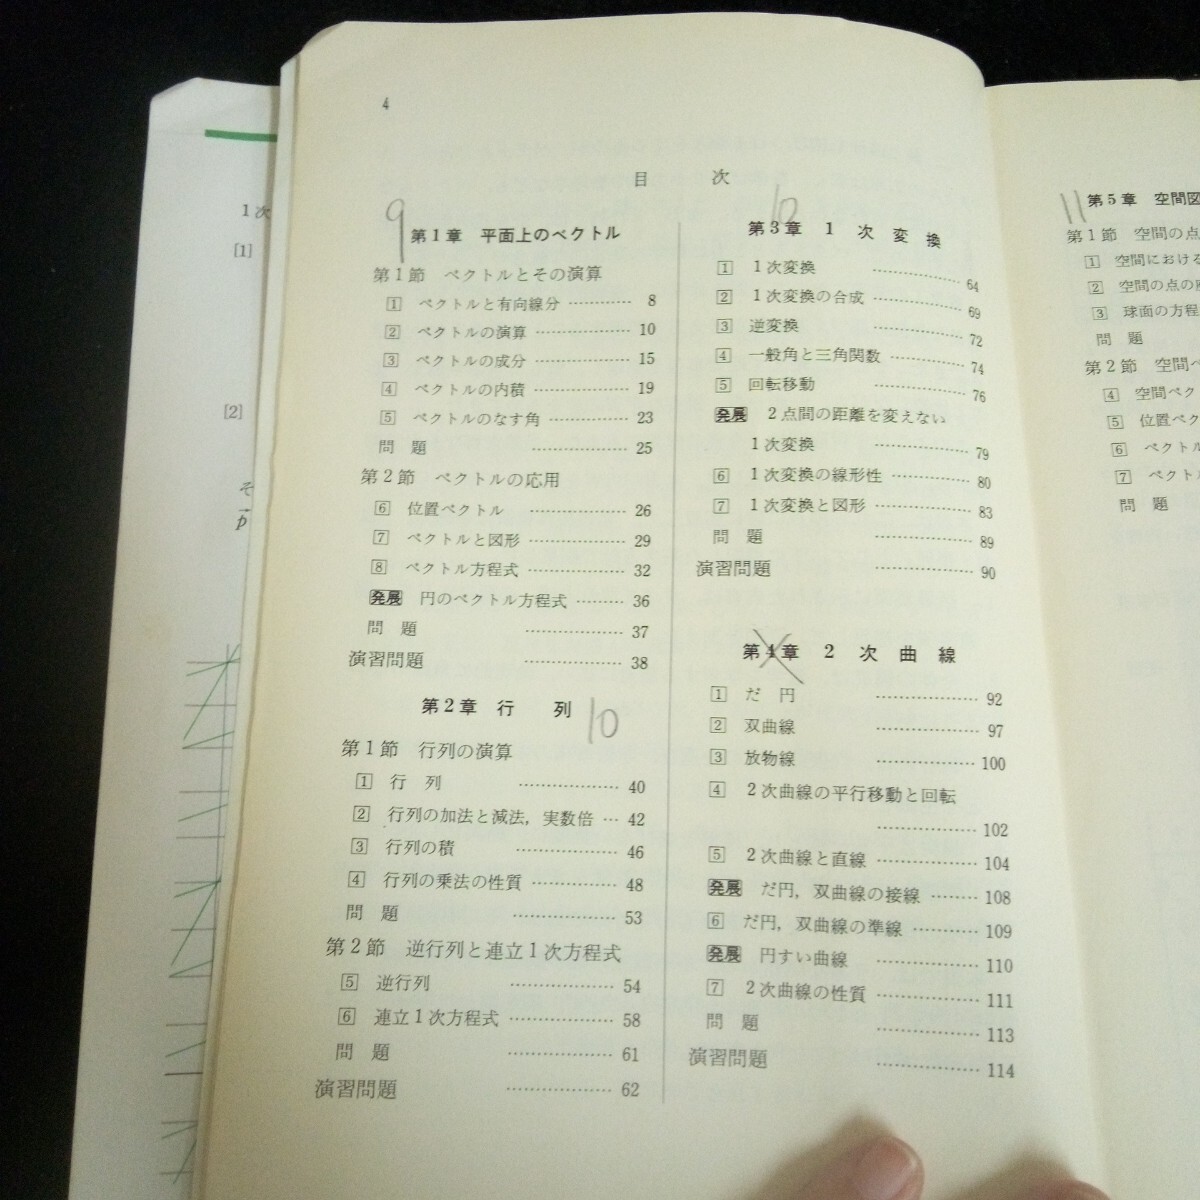 4
目 次
9
第1章 平面上のベクトル
第1節 ベクトルとその演算
1 ベクトルと有向線分 ………… 8
2 ベクトルの演算 ……………… 10
3 ベクトルの成分 ……………… 15
4 ベクトルの内積 ……………… 19
5 ベクトルのなす角 …………… 23
問 題 ……………… 25
第2節 ベクトルの応用
6 位置ベクトル ……………… 26
7 ベクトルと図形 ……………… 29
8 ベクトル方程式 ……………… 32
発展 円のベクトル方程式 ……… 36
問 題 ……………… 37
演習問題 ……………… 38
第2章 行 列
10
第1節 行列の演算
1 行 列 ……………… 40
2 行列の加法と減法，実数倍 … 42
3 行列の積 ……………… 46
4 行列の乗法の性質 …………… 48
問 題 ……………… 53
第2節 逆行列と連立1次方程式
5 逆行列 ……………… 54
6 連立1次方程式 ……………… 58
問 題 ……………… 61
演習問題 ……………… 62
10
第3章 1 次 変 換
1 1次変換 ……………… 64
2 1次変換の合成 ……………… 69
3 逆変換 ……………… 72
4 一般角と三角関数 ………… 74
5 回転移動 ……………… 76
発展 2点間の距離を変えない
1次変換 ……………… 79
6 1次変換の線形性 ………… 80
7 1次変換と図形 ……………… 83
問 題 ……………… 89
演習問題 ……………… 90
第4章 2 次 曲 線
1 だ 円 ……………… 92
2 双曲線 ……………… 97
3 放物線 ……………… 100
4 2次曲線の平行移動と回転
……………… 102
5 2次曲線と直線 ……………… 104
発展 だ円，双曲線の接線 ……… 108
6 だ円，双曲線の準線 ………… 109
発展 円すい曲線 ……………… 110
7 2次曲線の性質 ……………… 111
問 題 ……………… 113
演習問題 ……………… 114
11
第5章 空間図
第1節 空間の点
1 空間における
2 空間の点の
3 球面の方程
問 題
第2節 空間ベ
4 空間ベク
5 位置ベク
6 ベクトル
7 ベクト
問 題
1次
[1]
[2]
そ
p